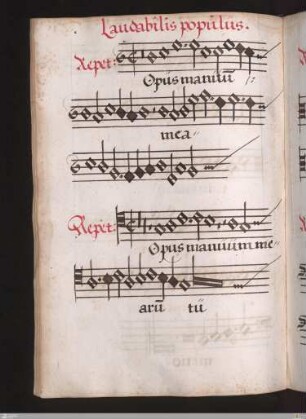 Laudabilis populus.
Repet:
Opus manuū /:
mea-
Repet:
Opus manuum me-
arū tū